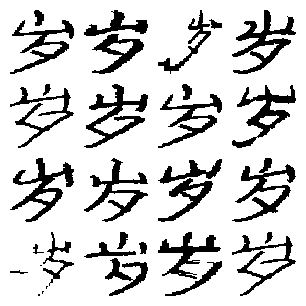 岁岁岁岁
岁岁岁岁
岁岁岁岁
岁岁岁岁